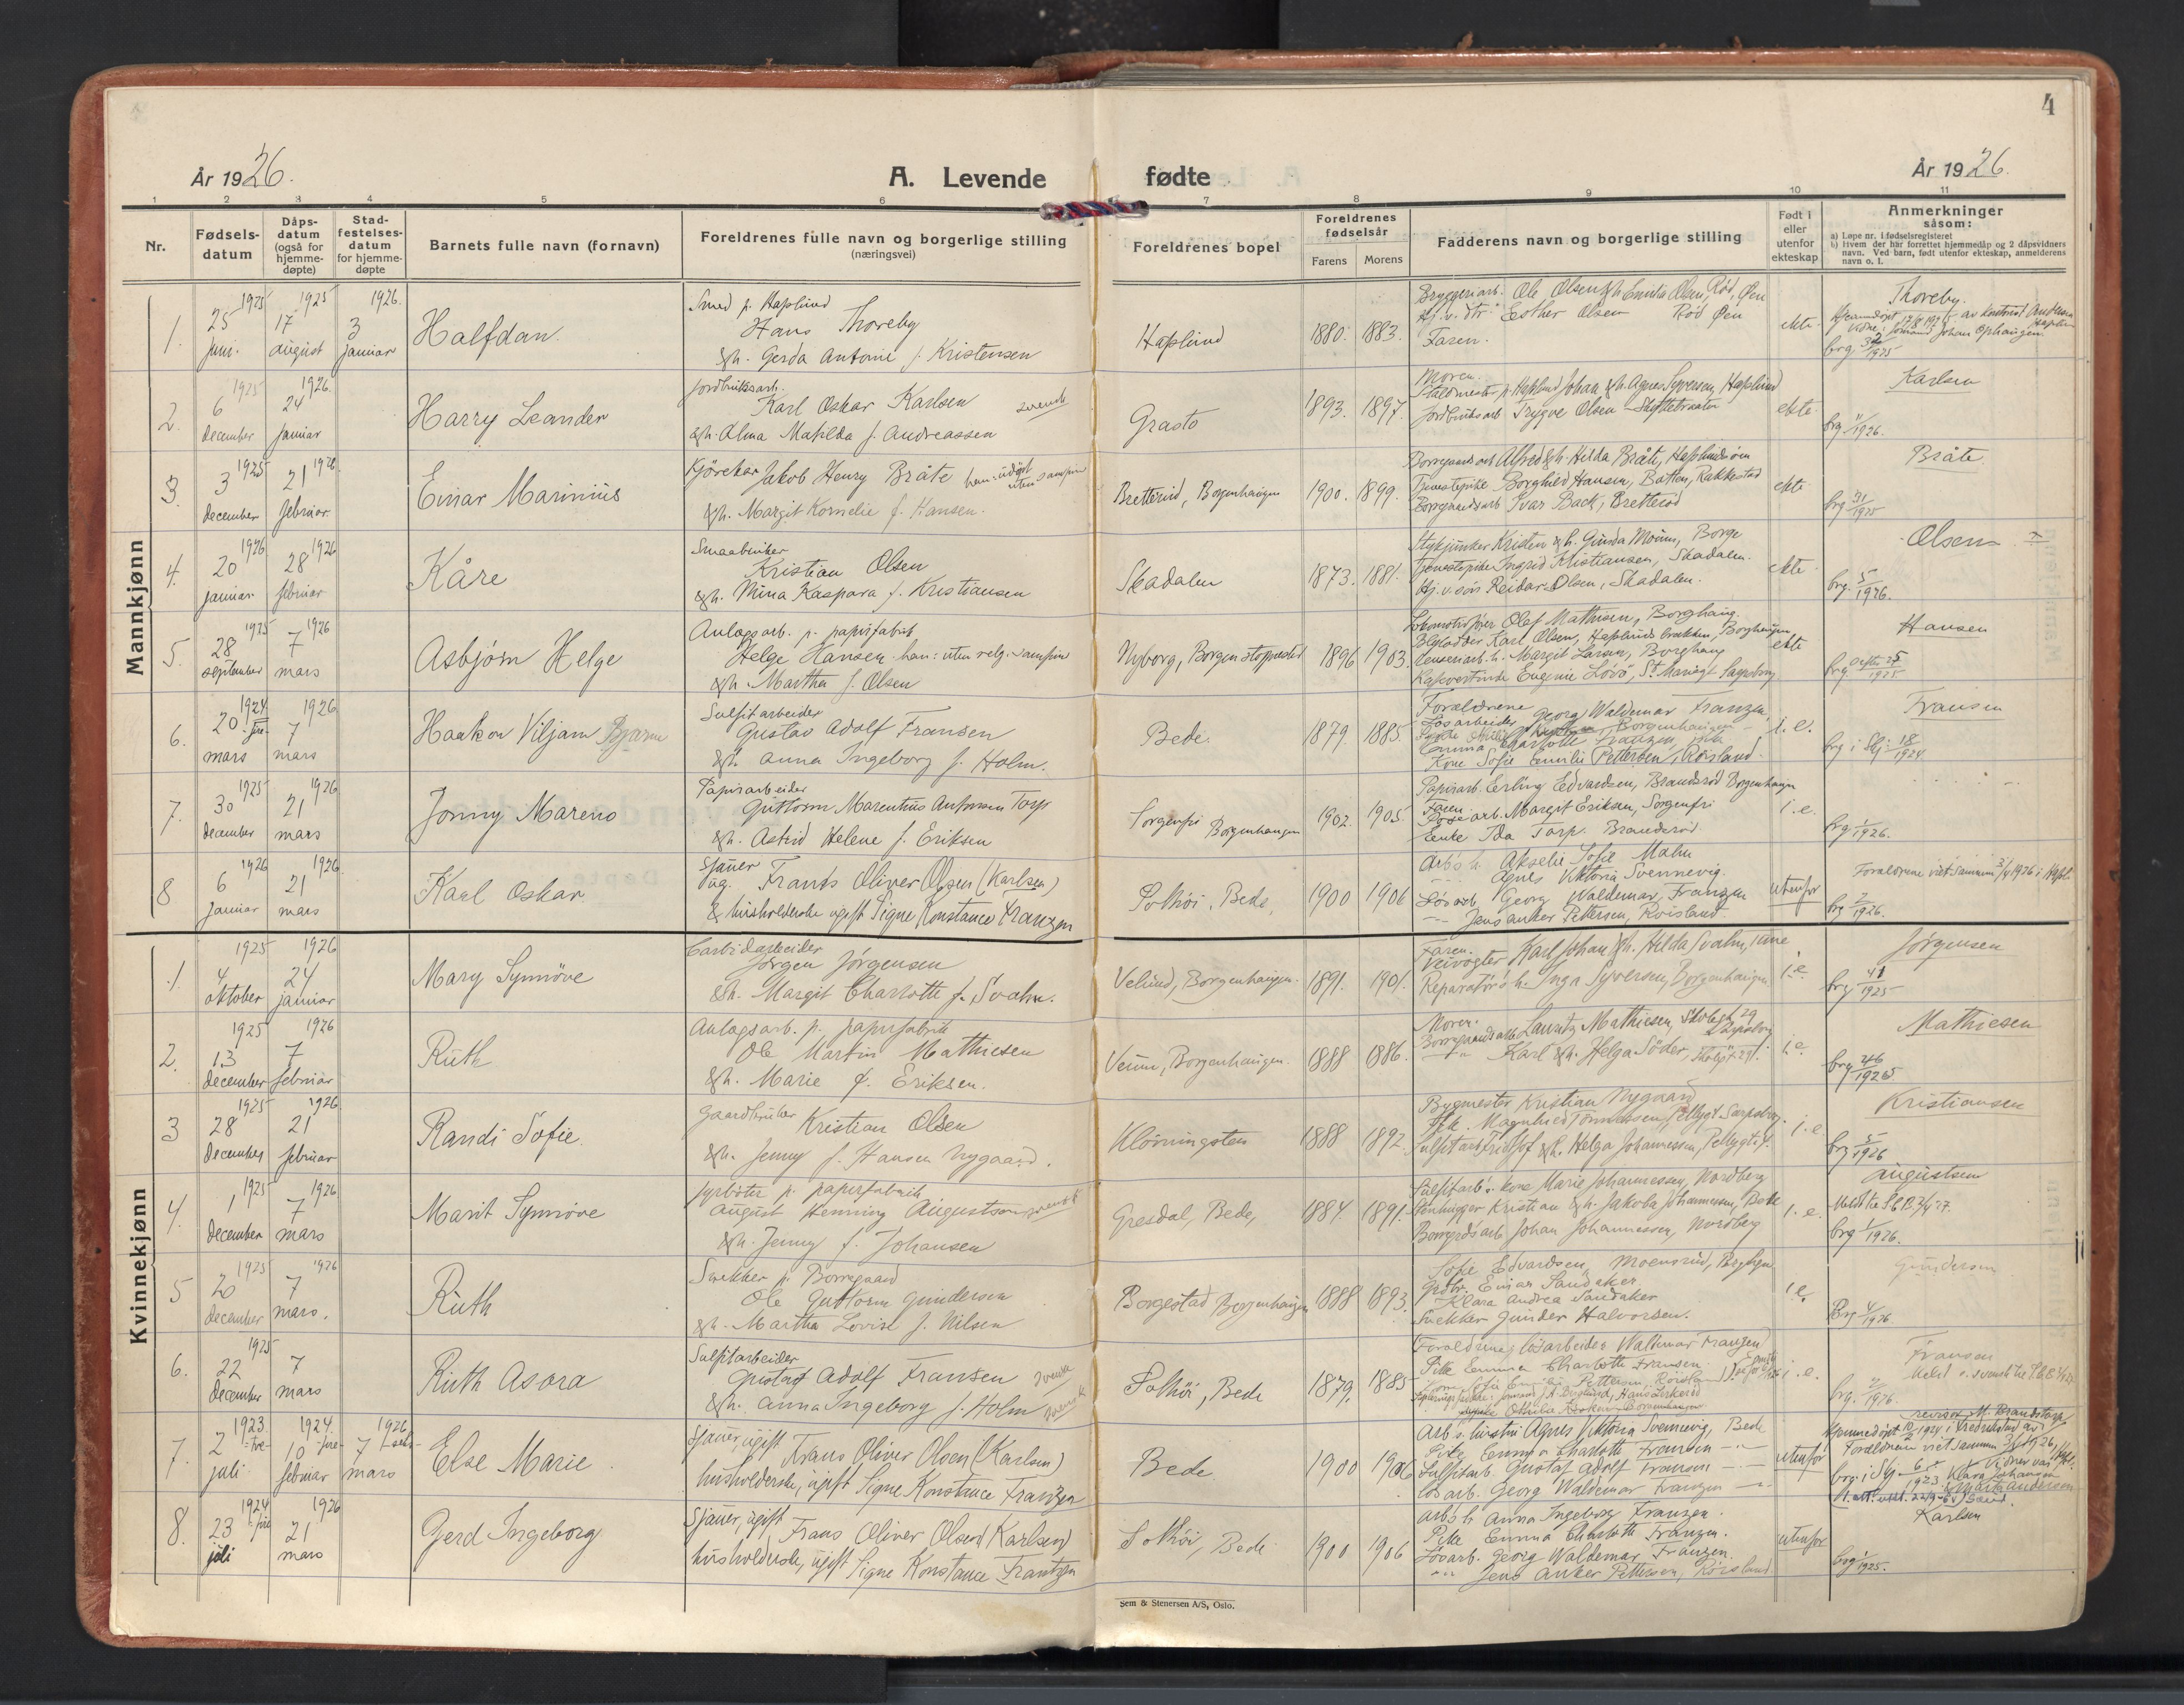 4
År 1926.
A. Levende
fødte
År 1926.
1 2 3 4 5 6 7 8 9 10 11
Nr.
Fødsels-
datum
Dåps-
datum
(også for
hjemme-
døpte)
Stad-
festelses-
datum
for hjemme-
døpte
Barnets fulle navn (fornavn)
Foreldrenes fulle navn og borgerlige stilling
(næringsvei)
Foreldrenes bopel
Foreldrenes
fødselsår
Farens Morens
Fadderens navn og borgerlige stilling
Født i
eller
utenfor
ekteskap
Anmerkninger
såsom:
a) Løpe nr. i fødselsregisteret
b) Hvem der har forrettet hjemmedåp og 2 dåpsvidners
navn. Ved barn, født utenfor ekteskap, anmelderens
navn o. l.
Mannkjønn
1.
1925
25
juni.
1925
17
august
1926.
3
januar
Halfdan.
Smed p. Hafslund
Hans Thoreby
&h. Gerda Antonie f. Kristensen
Hafslund
1880. 1883.
Bryggeriarb. Ole Olsen &h Emilie Olsen, Rød, Øen
Hj. v. dtr. Esther Olsen Rød Øen
Faren.
ekte
Thoreby.
brg 32/1925
2.
1925
6
december
1926
24
januar
Harry Leander
Jordbruksarb.
Karl Oskar Karlsen svensk
&h. Alma Matilda f. Andreassen
Grasto
1893. 1897.
Moren.
Staldmester p. Hafslund Johan &h. Agnes Syversen, Hafslund
Jordbruksarb Trygve Olsen
ekte
Karlsen
brg 11/1926.
3
1925
3
december
1926
21
februar
Einar Marinius
Kjørekar Jakob Henry Bråte
&h. Margit Kornelie f. Hansen.
Bretterud, Borgenhaugen
1900. 1899.
Borregaardsarb Alfred &h. Hilda Bråte, Hafslundsøen
Tjenestepike Borghild Hansen, Botten, Rakkestad
Borregaardsarb Ivar Back, Bretterød
ekte
Bråte
brg 31/1925
4.
1926
20
januar
1926
28
februar
Kåre
Smaabruker
Kristian Olsen
&h. Mina Kaspara f. Kristiansen
Skadalen
1873. 1881.
Stykjunker Kristen &h. Gunda Moum, Borge
Tjenestepike Ingrid Kristiansen, Skadalen.
Hj. v. søn Reidar Olsen, Skadalen.
ekte
Olsen
brg. 5/1926.
5.
1925
28
september
1926
7
mars
Asbjørn Helge
Anlægsarb. p. papirfabrik
Helge Hansen han: uten relg. samfun
&h. Martha f. Olsen
Nyborg, Borgen stoppested
1896 1903.
Lokomotivfører Olaf Mathisen, Borghaug
Karl Olsen, Hafslunds brakken, Borghaugen
Margit Larsen, Borghaug
Kafévertinde Eugenie Løvø, St. Mariegt Sarpsborg
ekte
Hansen
6.
1924
20
mars
1926
7
mars
Haakon Viljam Bjarne
Sulfitarbeider
Gustav Adolf Fransen
&h. Anna Ingeborg f. Holm.
Bede.
1879. 1885.
Forældrene
Løsarbeider Georg Waldemar Franzen,
Emma Charlotte Franzen, pike
Kone Sofie Emilie Pettersen, Roisland.
i. e.
Fransen
brg i Skj. 18/1924
7.
1925
30
december
1926
21
mars
Jonny Mareno
Papirarbeider
Guttorm Marentius Antonsen Torp
&h. Astrid Helene f. Eriksen
Sorgenfri Borgenhaugen
1902. 1905.
Papirarb. Erling Edvardsen, Brandsrød Borgenhaugen
Faren.
Margit Eriksen, Sorgenfri
Enke Ida Torp. Brandsrød.
i. e.
brg 1/1926.
8
1926
6
januar
1926
21
mars
Karl Oskar
Sjauer
ug. Frants Oliver Olsen (Karlsen)
& husholderske ugift Signe Konstance Franzen
Solhøi, Bede,
1900 1906
Arb. h. Akselie Sofie Malm
Agnes Viktoria Svennevig.
Løsarb. Georg Waldemar, Franzen
Jens Anker Pettersen, Roisland
utenfor
Forældrene viet sammen 3/4 1926 i Hafsl.
brg 2/1926.
Kvinnekjønn
1.
1925
4
oktober
1926
24
januar
Mary Synnöve
Carbidarbeider
Jørgen Jørgensen
&h. Margit Charlotte f. Svahn.
Velund, Borgenhaugen.
1891. 1901.
Faren.
Veivogter Karl Johan &h. Hilda Svahn, Tune
Reparatør &h. Inga Syversen, Borgenhaugen
i. e.
Jørgensen
brg 41/1925
2.
1925
13
december
1926
7
februar
Ruth
Anlægsarb. p. papirfabrik
Ole Martin Mathiesen
&h. Marie f. Eriksen.
Veum, Borgenhaugen.
1888 1886.
Moren.
Borregaardsarb Lauritz Mathiesen, Skolegt 29 Sarpsborg
Karl &h. Helga Söder, Skolegt 29.
i. e.
Mathiesen
brg 46/1925
3
1925
28
December
1926
21
februar
Randi Sofie.
Gaardbruker Kristian Olsen
&h. Jenny f. Hansen Nygaard.
Kløvningsten
1888 1892.
Bygmester Kristian Nygaard
Frk. Magnhild Tommesen, Pellygt. Sarpsborg.
Sulfitarb Fridtjof &h. Helga Johannessen, Pellygt.
i. e.
Kristiansen
brg 5/1926
4.
1925
1
december
1926
7
mars
Marit Synnöve
Fyrbøter p. papirfabrik
August Henning Augustson svensk
&h. Jenny f. Johansen
Gresdal, Bede,
1884. 1891.
Sulfitarb. kone Marie Johannessen, Nordberg
Stenhugger Kristian &h. Jakoba Johannessen, Bede
Borregrdsarb Johan Johannessen, Nordberg
i. e.
Augustsen
brg 1/1926.
5
1925
20
december
1926
7
mars.
Ruth
Snekker p. Borregaard
Ole Guttorm Gundersen
&h. Martha Lovise f. Nilsen
Borgestad Borgenhaugen
1888 1893.
Sofie Edvardsen, Moensrud,
Grdbr. Einar Sandaker
Klara Andrea Sandaker
Snekker Gunder Halvorsen.
i. e.
Gundersen
Brg 4/1926.
6.
1925
22
december
7
mars
Ruth Asora
Sulfitarbeider
Gustaf Adolf Fransen svensk
&h. Anna Ingeborg f. Holm svensk
Solhøi, Bede
1879. 1885
Forældrene, løsarbeider Waldemar Franzen
Pike Emma Charlotte Fransen.
i. e.
Fransen
brg. 2/1926.
7.
1923
2
juli
1924.
10
februar
1926
7
mars
Else Marie
Sjauer, ugift Frans Oliver Olsen (Karlsen)
husholderske, ugift Signe Konstance Franzen
Bede.
1900 1906
Arb. s. hustru Agnes Viktoria Svennevig, Bede
Pike Emma Charlotte Fransen
Sulfitarb. Gustaf Adolf Fransen
Løsarb. Georg Waldemar Franzen
utenfor
Forældrene viet sammen 3/4 1926,
8.
1924
23
juli
1926
21
mars
Gerd Ingeborg
Sjauer, ugift Frans Oliver Olsen (Karlsen)
husholderske, ugift Signe Konstance Frantzen
Solhøi, Bede
1900 1906
Arb. h. Anna Ingeborg Franzen.
Pike Emma Charlotte Franzen.
Løsarb. Georg Waldemar Franzen.
Jens Anker Pettersen, Roisland
utenfor
Karlsen
brg 1/1925.
Sem & Stenersen A/S, Oslo.